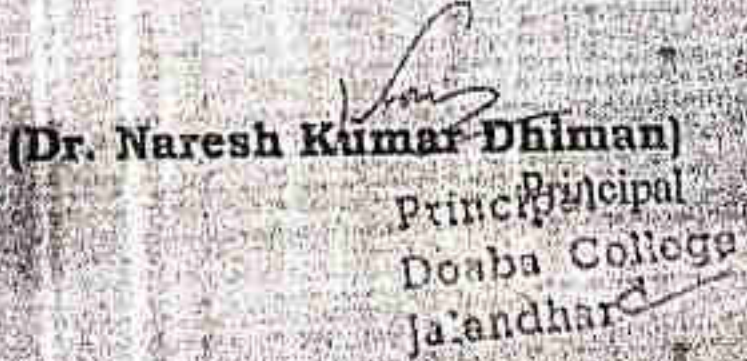 (Dr. Naresh Kumar Dhiman)
Principal
Principal
Doaba College
Jalandhar